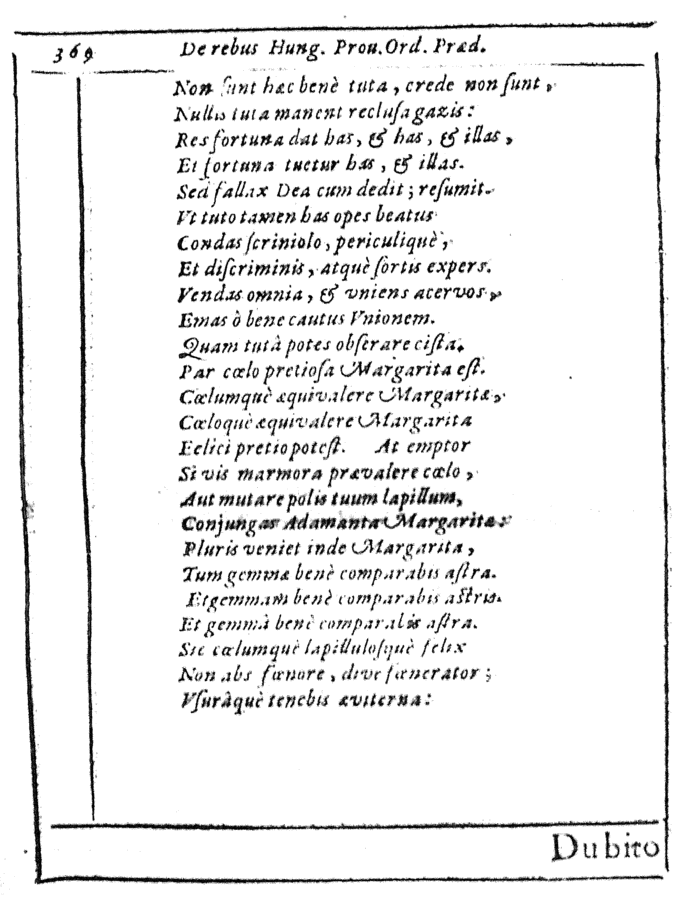 369 De rebus Hung. Prou. Ord. Præd.
Non ſunt hæc benè tuta, crede non ſunt,
Nullis tuta manent recluſa gazis:
Res fortuna dat has, & has, & illas,
Et fortuna tuetur has, & illas.
Sed fallax Dea cum dedit; reſumit.
Vt tuto tamen has opes beatus
Condas ſcriniolo, periculiquè,
Et diſcriminis, atquè ſortis expers.
Vendas omnia, & vniens acervos,
Emas ò bene cautus Vnionem.
Quam tutâ potes obſerare ciſta.
Par cœlo pretioſa Margarita eſt.
Cœlumquè æquivalere Margaritæ,
Cœloquè æquivalere Margarita
Eelici pretio poteſt. At emptor
Si vis marmora prævalere cœlo,
Aut mutare polis tuum lapillum,
Conjungas Adamanta Margaritæ:
Pluris veniet inde Margarita,
Tum gemmæ benè comparabis aſtra.
Et gemmam benè comparabis aſtris.
Et gemmâ benè comparabis aſtra.
Sic cœlumquè lapilluloſquè felix
Non abs fœnore, dive fœnerator;
Vſurâquè tenebis æviterna:
Dubito